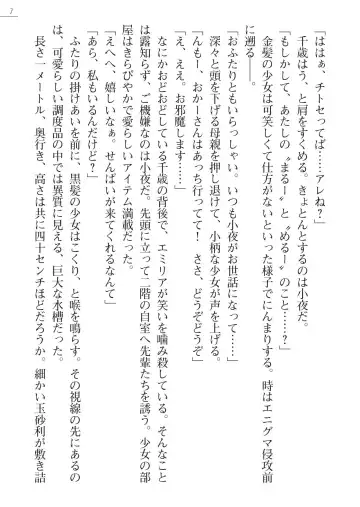 7
「ははぁ、チトセってば……アレね？」
千歳はうっ、と肩をすくめる。きょとんとするのは小夜だ。
「もしかして、あたしの〝まるー〟と〝めるー〟のこと……？」
金髪の少女は可笑しくて仕方がないといった様子でにんまりする。時はエニグマ侵攻前
に遡る。
「おふたりともいらっしゃい。いつも小夜がお世話になって……」
深々と頭を下げる母親を押し退けて、小柄な少女が声を上げる。
「んもー、おかーさんはあっち行ってて！　ささ、どうぞどうぞ」
「え、ええ。お邪魔します……」
なにかおどおどしている千歳の背後で、エミリアが笑いを噛み殺している。そんなこと
は露知らず、ご機嫌なのは小夜だ。先頭に立って二階の自室へ先輩たちを誘う。少女の部
屋はきらびやかで愛らしいアイテム満載だった。
「えへへ、嬉しいなぁ。せんぱいが来てくれるなんて」
「あら、私もいるんだけど？」
ふたりの掛けあいを前に、黒髪の少女はこくり、と喉を鳴らす。その視線の先にあるの
は、可愛らしい調度品の中では異質に見える、巨大な水槽だった。
長さ一メートル、奥行き、高さは共に四十センチほどだろうか。細かい玉砂利が敷き詰